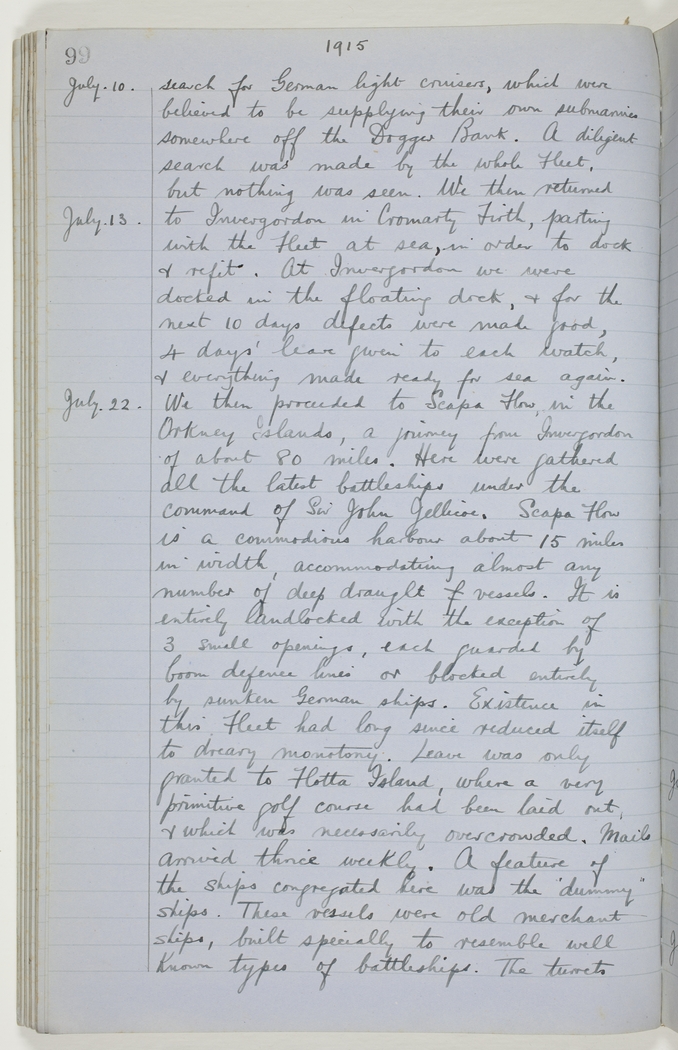 99
1915
July. 10. search for German light cruisers, which were
believed to be supplying their own submarines
somewhere off the Dogger Bank. A diligent
search was made by the whole Fleet,
but nothing was seen. We then returned
July. 13. to Invergordon in Cromarty Firth, parting
with the Fleet at sea, in order to dock
& refit. At Invergordon we were
docked in the floating dock, & for the
next 10 days defects were made good,
4 days' leave given to each watch,
& everything made ready for sea again.
July. 22. We then proceeded to Scapa Flow, in the
Orkney Islands, a journey from Invergordon
of about 80 miles. Here were gathered
all the latest battleships under the
command of Sir John Jellicoe. Scapa Flow
is a commodious harbour about 15 miles
in width, accommodating almost any
number of deep draught vessels. It is
entirely landlocked with the exception of
3 small openings, each guarded by
boom defence lines or blocked entirely
by sunken German ships. Existence in
this Fleet had long since reduced itself
to dreary monotony. Leave was only
granted to Flotta Island, where a very
primitive golf course had been laid out,
& which was necessarily overcrowded. Mails
arrived thrice weekly. A feature of
the ships congregated here was the "dummy"
ships. These vessels were old merchant
ships, built specially to resemble well
known types of battleships. The turrets